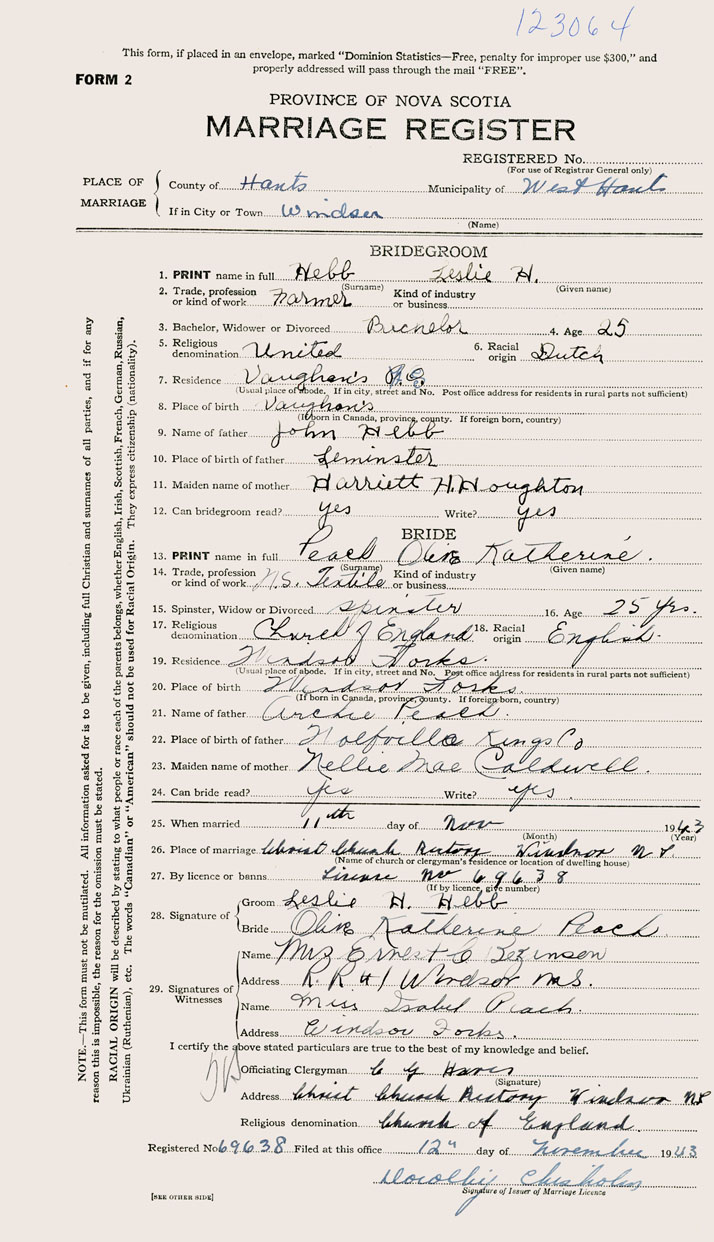 123064
This form, if placed in an envelope, marked "Dominion Statistics—Free, penalty for improper use $300," and
properly addressed will pass through the mail "FREE".
FORM 2
PROVINCE OF NOVA SCOTIA
MARRIAGE REGISTER
REGISTERED No.
(For use of Registrar General only)
PLACE OF MARRIAGE
County of Hants Municipality of West Hants
If in City or Town Windsor
(Name)
BRIDEGROOM
1. PRINT name in full Hebb Leslie H.
(Surname) (Given name)
2. Trade, profession or kind of work Farmer Kind of industry or business
3. Bachelor, Widower or Divorced Bachelor 4. Age 25
5. Religious denomination United 6. Racial origin Dutch
7. Residence Vaughan's
(Usual place of abode. If in city, street and No. Post office address for residents in rural parts not sufficient)
8. Place of birth Vaughan's
(If born in Canada, province, county. If foreign born, country)
9. Name of father John Hebb
10. Place of birth of father Leminster
11. Maiden name of mother Harriett H. Houghton
12. Can bridegroom read? yes Write? yes
BRIDE
13. PRINT name in full Peach Olive Katherine.
(Surname) (Given name)
14. Trade, profession or kind of work N.S. Textile Kind of industry or business
15. Spinster, Widow or Divorced Spinster 16. Age 25 yrs.
17. Religious denomination Church of England 18. Racial origin English.
19. Residence Windsor Forks.
(Usual place of abode. If in city, street and No. Post office address for residents in rural parts not sufficient)
20. Place of birth Windsor Forks.
(If born in Canada, province, county. If foreign born, country)
21. Name of father Archie Peach.
22. Place of birth of father Wolfville Kings Co
23. Maiden name of mother Nellie Mae Caldwell.
24. Can bride read? yes Write? yes.
25. When married 11th day of Nov 1943
(Month) (Year)
26. Place of marriage Christ Church Rectory Windsor N.S.
(Name of church or clergyman's residence or location of dwelling house)
27. By licence or banns License No 69638
(If by licence, give number)
28. Signature of
Groom Leslie H. Hebb
Bride Olive Katherine Peach
29. Signatures of Witnesses
Name Mrs Ernest C
Address R. R #1 Windsor N.S.
Name Miss Isabel Peach.
Address Windsor Forks.
I certify the above stated particulars are true to the best of my knowledge and belief.
Officiating Clergyman C G
(Signature)
Address Christ Church Rectory Windsor N.S
Religious denomination Church of England
Registered No 69638 Filed at this office 12" day of November 1943
Dorothy Chisholm
Signature of Issuer of Marriage Licence
[SEE OTHER SIDE]
NOTE.—This form must not be mutilated. All information asked for is to be given, including full Christian and surnames of all parties, and if for any
reason this is impossible, the reason for the omission must be stated.
RACIAL ORIGIN will be described by stating to what people or race each of the parents belongs, whether English, Irish, Scottish, French, German, Russian,
Ukrainian (Ruthenian), etc. The words "Canadian" or "American" should not be used for Racial Origin. They express citizenship (nationality).